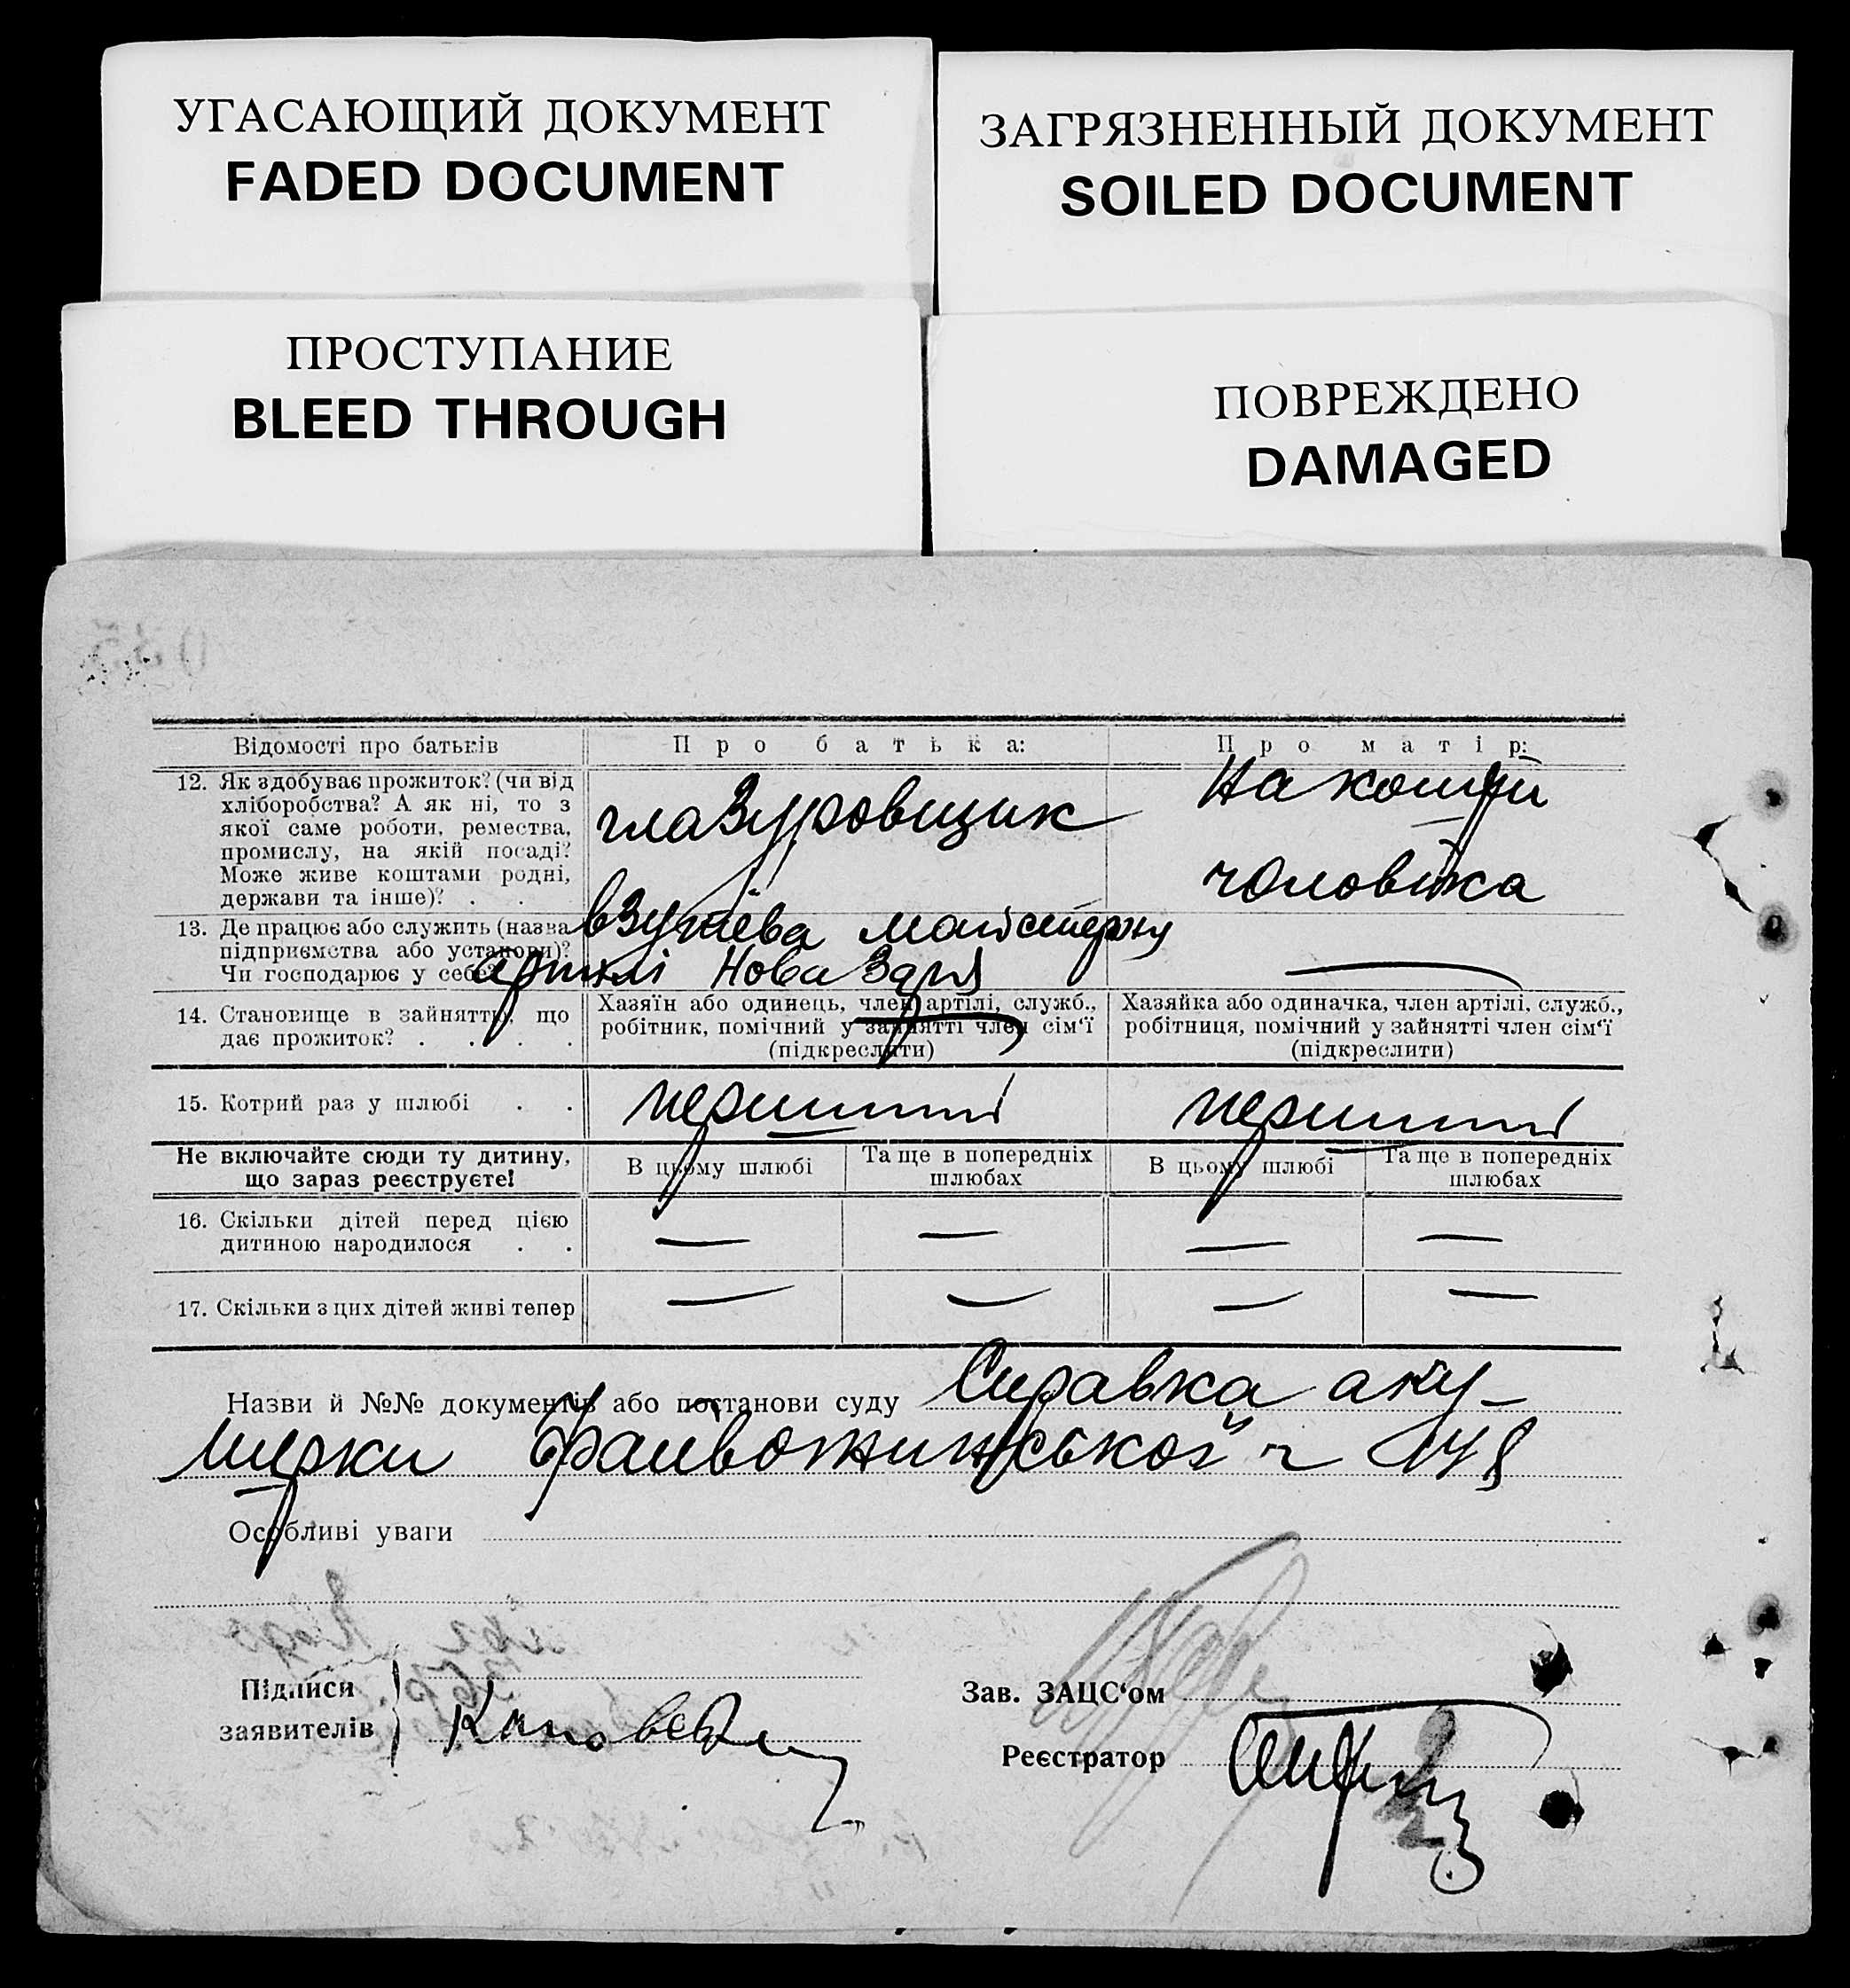 УГАСАЮЩИЙ ДОКУМЕНТ
FADED DOCUMENT
ЗАГРЯЗНЕННЫЙ ДОКУМЕНТ
SOILED DOCUMENT
ПРОСТУПАНИЕ
BLEED THROUGH
ПОВРЕЖДЕНО
DAMAGED
Відомості про батьків
Про батька:
Про матір:
12. Як здобуває прожиток? (чи від
хліборобства? А як ні, то з
якої саме роботи, ремества,
промислу, на якій посаді?
Може живе коштами родні,
держави та інше)? . .
глазуровщик
На кошти
чоловіка
13. Де працює або служить (назва
підприємства або установи)?
Чи господарює у себе?
взутєва майстерня
артілі Нова Зоря
14. Становище в зайнятті, що
дає прожиток? . . . .
Хазяїн або одинець, член артілі, служб.,
робітник, помічний у зайнятті член сім'ї
(підкреслити)
Хазяйка або одиначка, член артілі, служб.,
робітниця, помічний у зайнятті член сім'ї
(підкреслити)
15. Котрий раз у шлюбі . .
перший
перший
Не включайте сюди ту дитину,
що зараз реєструєте!
В цьому шлюбі
Та ще в попередніх
шлюбах
В цьому шлюбі
Та ще в попередніх
шлюбах
16. Скільки дітей перед цією
дитиною народилося . .
— — — —
17. Скільки з цих дітей живі тепер
— — — —
Назви й №№ документів або постанови суду Справка аку-
шерки
Особливі уваги
Підписи
заявителів
Зав. ЗАЦС'ом
Реєстратор